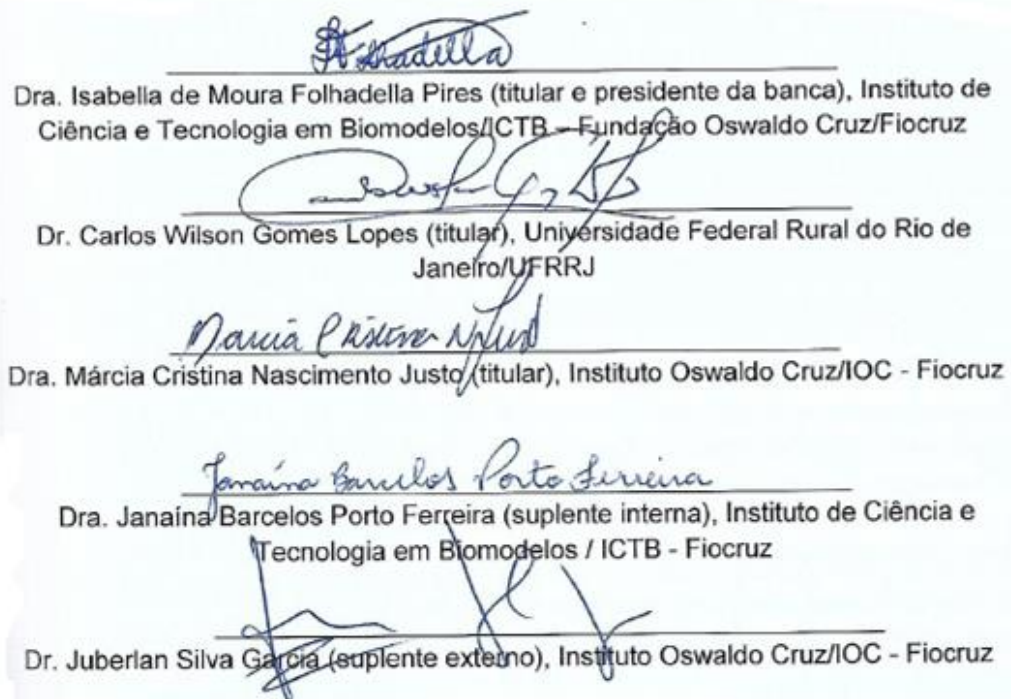 Dra. Isabella de Moura Folhadella Pires (titular e presidente da banca), Instituto de
Ciência e Tecnologia em Biomodelos/ICTB – Fundação Oswaldo Cruz/Fiocruz
Dr. Carlos Wilson Gomes Lopes (titular), Universidade Federal Rural do Rio de
Janeiro/UFRRJ
Marcia Cristina
Dra. Márcia Cristina Nascimento Justo (titular), Instituto Oswaldo Cruz/IOC - Fiocruz
Janaína Barcelos Porto Ferreira
Dra. Janaína Barcelos Porto Ferreira (suplente interna), Instituto de Ciência e
Tecnologia em Biomodelos / ICTB - Fiocruz
Dr. Juberlan Silva Garcia (suplente externo), Instituto Oswaldo Cruz/IOC - Fiocruz